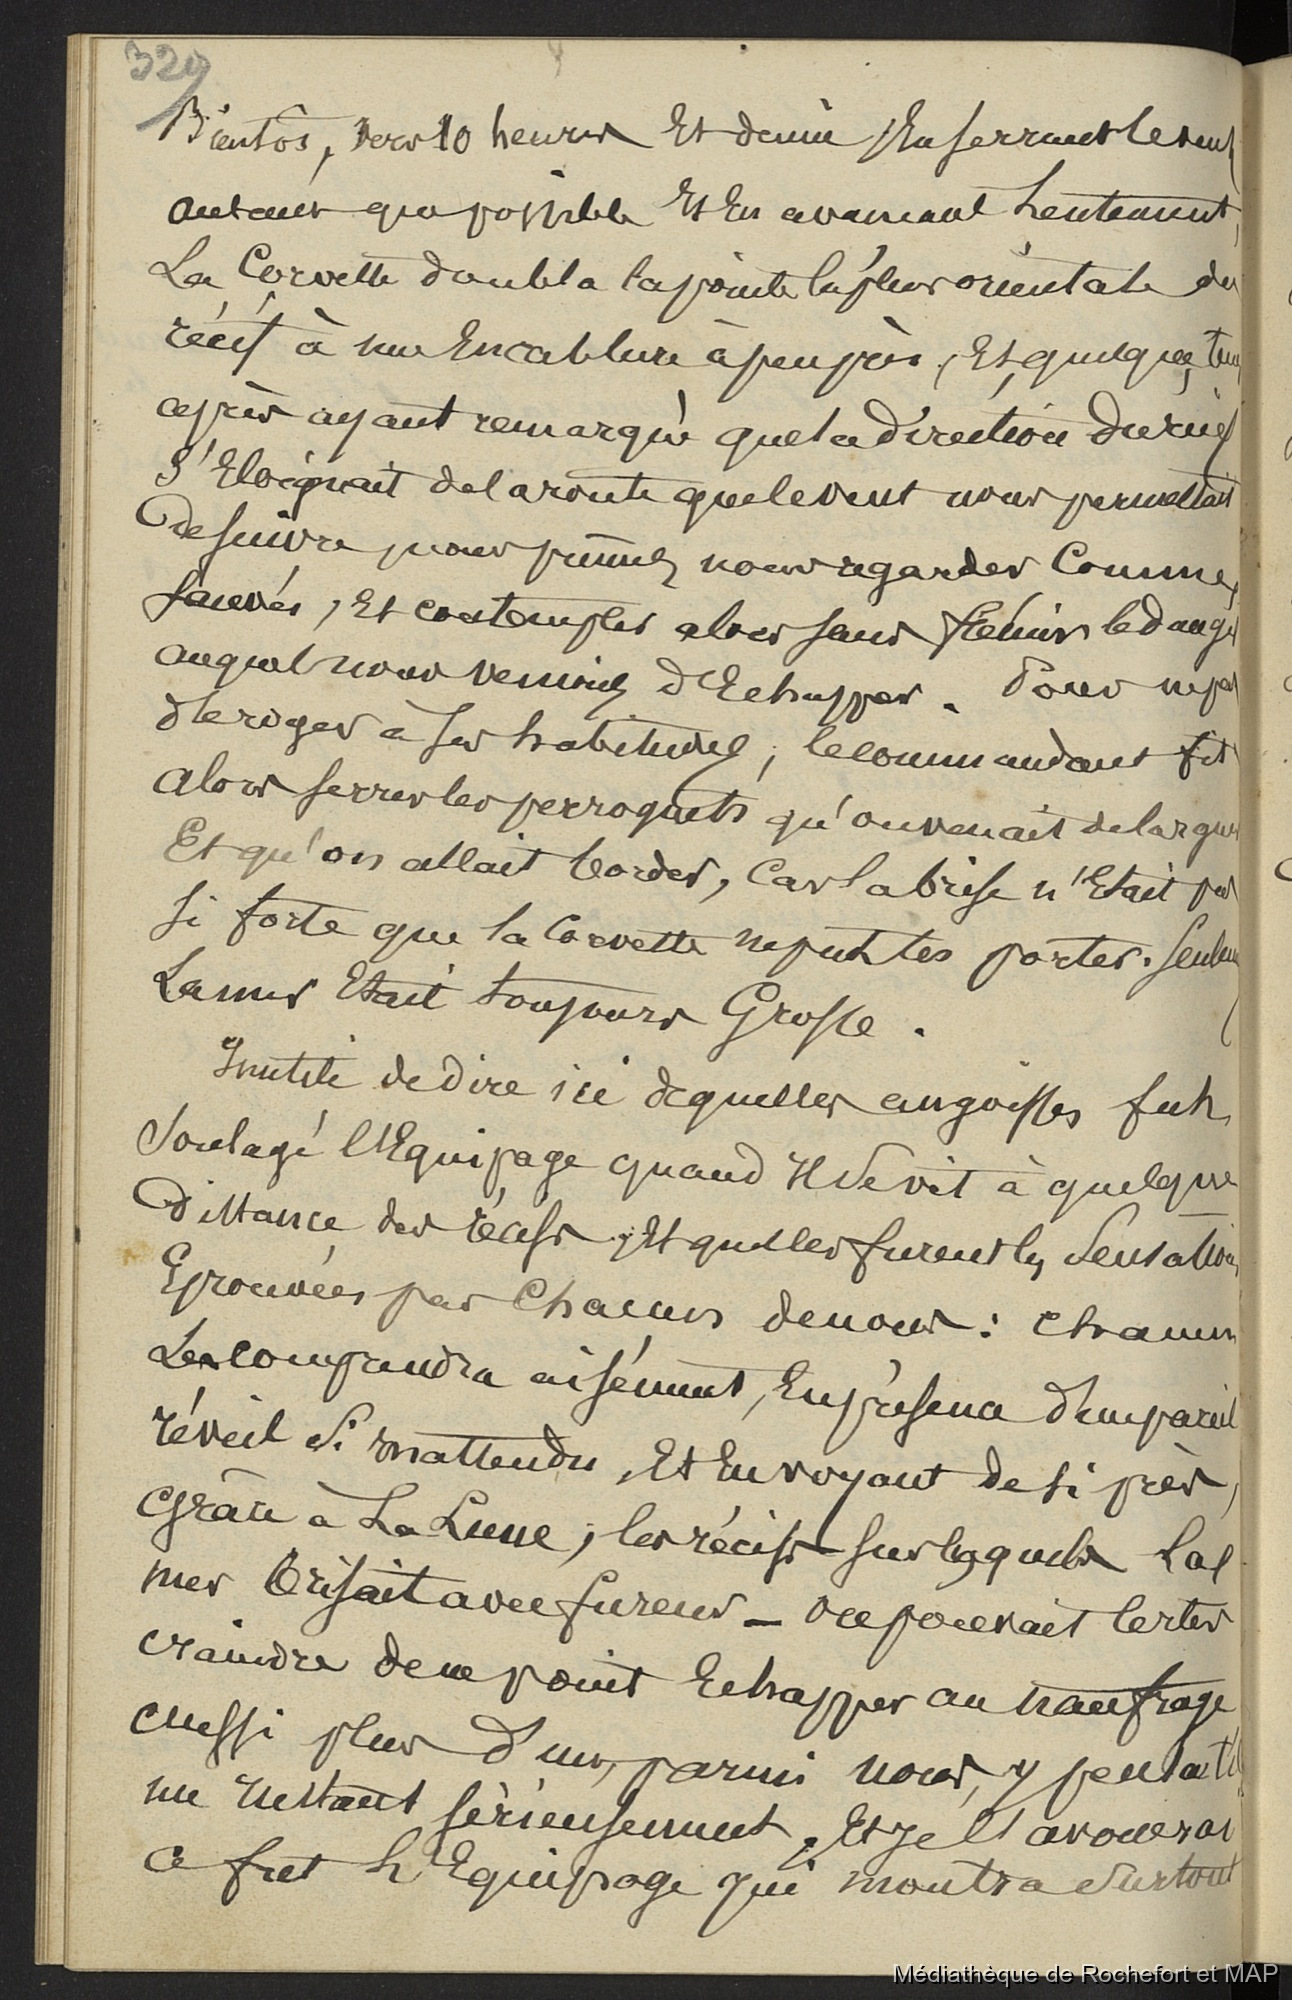 329
Bientôt, vers 10 heures Et demie, En serrant le vent
autant que possible Et En avancant Lentement,
La Corvette doubla la pointe la plus orientale du
récif à une Encablure à peu près, Et quelque tem
après ayant remarqué que la Direction du récif
S'Eloignait de la route que le vent nous permettait
De suivre, nous pûmes nous regarder Comme
Sauvés, Et contempler alors sans frémir le danger
auquel nous venions d'Echapper. Pour ne pas
déroger à ses habitudes, le commandant fit
alors serrer les perroquets qu'on venait de larguer
Et qu'on allait border, Car la brise n'Etait pas
si forte que la Corvette ne put les porter. Seulem
La mer Etait toujours Grosse.
Inutile de dire ici de quelles angoisses fut
Soulagé l'Equipage quand Il se vit à quelque
Distance des récifs, Et quelles furent les Sensations
Eprouvées par Chacun de nous : chacun
Les comprendra aisément, En présence d'un pareil
réveil si inattendu, Et En voyant de si près,
Grâce à La Lune, les récifs sur lesquels La
mer brisait avec fureur — On pouvait Certes
craindre de ne point Echapper au naufrage
aussi plus d'un, parmi nous, y pensa t'il
un Instant sérieusement, Et je L'avouerai
Ce fut L'Equipage qui montra Surtout
Médiathèque de Rochefort et MAP